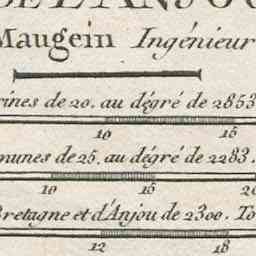 DE L'ANJOU
Maugein Ingénieur
rines de 20. au dégré de 2853
10 15
munes de 25. au dégré de 2283.
10 15 20
Bretagne et d'Anjou de 2300. To
12 18